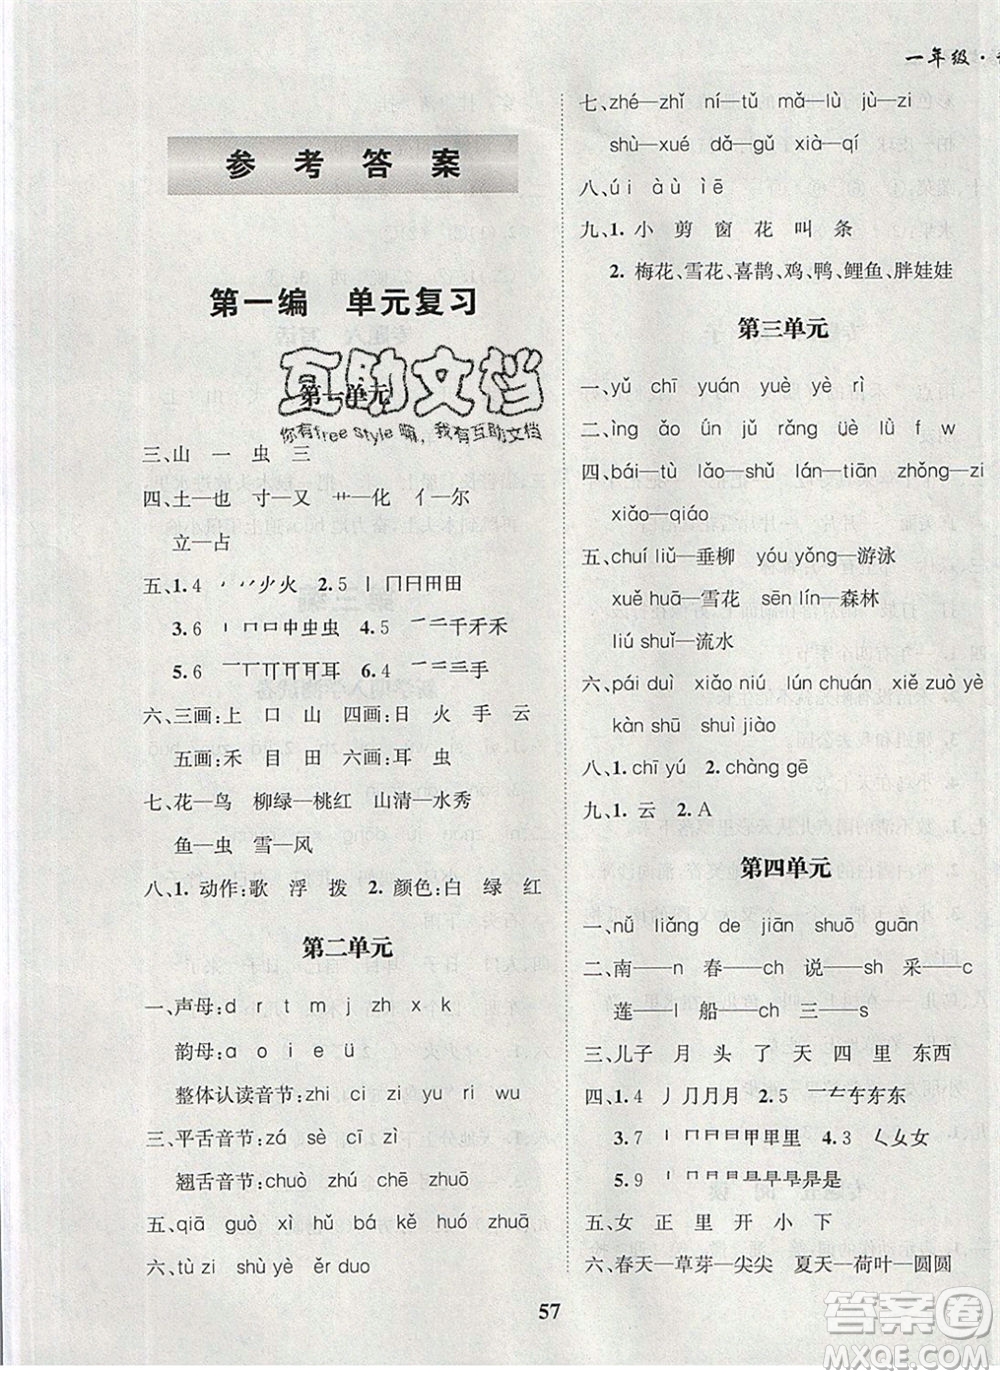 一年级·
参考答案
第一编 单元复习
第一单元
互助文档
你有free style嘛，我有互助文档
三、山 一 虫 三
四、土—也 寸—又 艹—化 亻—尔
立—占
五、1.4 火 2.5 田
3.6 虫 4.5 禾
5.6 耳 6.4 手
六、三画：上 口 山 四画：日 火 手 云
五画：禾 目 田 六画：耳 虫
七、花—鸟 柳绿—桃红 山清—水秀
鱼—虫 雪—风
八、1.动作：歌 浮 拨 2.颜色：白 绿 红
第二单元
一、声母：d r t m j zh x k
韵母：ɑ o i e ü
整体认读音节：zhi ci zi yu ri wu
三、平舌音节：zá sè cí zì
翘舌音节：chuò zhú chē zhuō
五、qiā guò xì hú bá kě huó zhuó
六、tù zi shù yè ěr duo
七、zhé—zhǐ ní—tú mǎ—lù jù—zi
shù—xué dǎ—gǔ xià—qí
八、úi àù ìē
九、1.小 剪 窗 花 叫 条
2.梅花、雪花、喜鹊、鸡、鸭、鲤鱼、胖娃娃
第三单元
一、yǔ chī yuán yuè yè rì
二、ìng ǎo ǘn jǔ rǎng üè lù f w
四、bái—tù lǎo—shǔ lán—tiān zhǒng—zi
xiǎo—qiáo
五、chuí liǔ—垂柳 yóu yǒng—游泳
xuě huā—雪花 sēn lín—森林
liú shuǐ—流水
六、pái duì xiǎo niú lún chuán xiě zuò yè
kàn shū shuì jiào
八、1.chī yú 2.chàng gē
九、1.云 2.A
第四单元
一、nǚ liǎng de jiān shuō guān
二、南——n 春——ch 说——sh 采——c
莲——l 船——ch 三——s
三、儿子 月 头 了 天 四 里 东西
四、1.4 月 2.5 东
3.7 里 4.3 女
5.9 是
五、女 正 里 开 小 下
六、春天—草芽—尖尖 夏天—荷叶—圆圆
57
答案圈
MXQE.COM